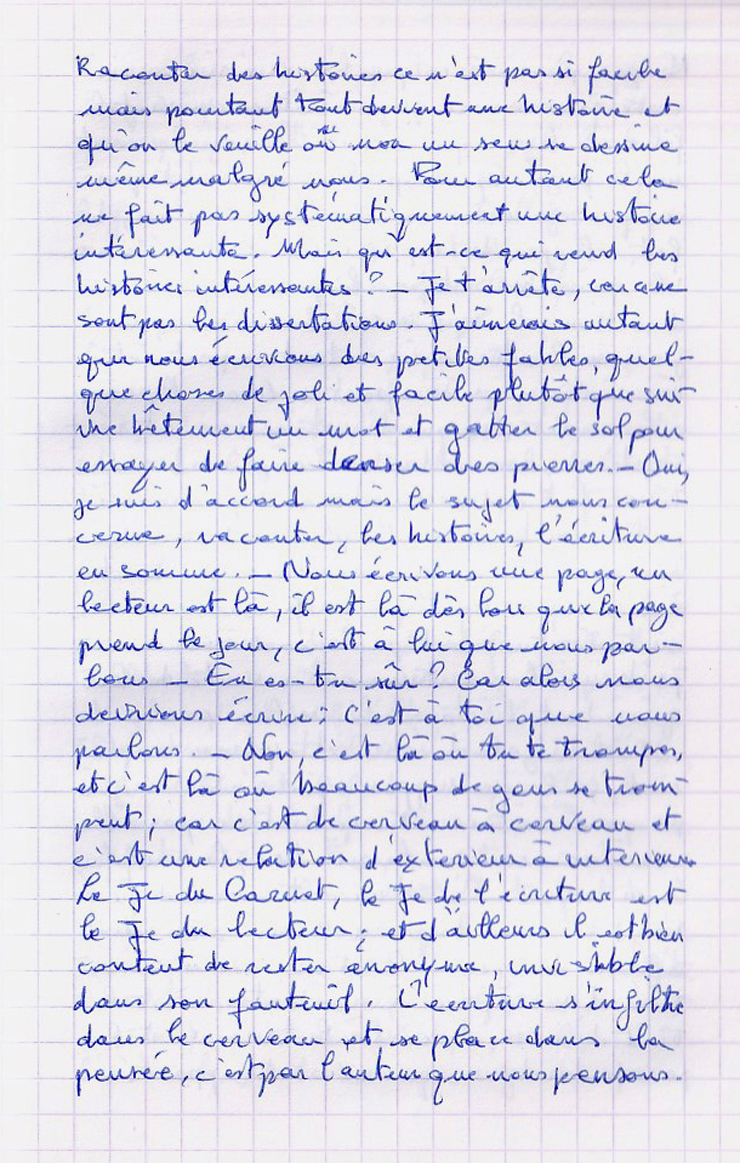 Raconter des histoires ce n'est pas si facile
mais pourtant tout devient une histoire et
qu'on le veuille ou non un sens se dessine
même malgré nous. Pour autant cela
ne fait pas systématiquement une histoire
intéressante. Mais qu'est-ce qui rend les
histoires intéressantes ? — Je t'arrête, car ce ne
sont pas les dissertations. J'aimerais autant
que nous écrivions des petites fables, quel-
que choses de joli et facile plutôt que sui-
vre bêtement un mot et gratter le sol pour
essayer de faire danser des pierres. — Oui,
je suis d'accord mais le sujet nous con-
cerne, raconter, les histoires, l'écriture
en somme. — Nous écrivons une page, un
lecteur est là, il est là dès lors que la page
prend le jour, c'est à lui que nous par-
lons — En es-tu sûr ? Car alors nous
devrions écrire : c'est à toi que nous
parlons. — Non, c'est là où tu te trompes,
et c'est là où beaucoup de gens se trom
pent ; car c'est de cerveau à cerveau et
c'est une relation d'exterieur à interieur.
Le Je du Carnet, le Je de l'écriture est
le Je du lecteur ; et d'ailleurs il est bien
content de rester anonyme, invisible
dans son fauteuil. L'écriture s'infiltre
dans le cerveau et se place dans la
pensée, c'est par l'auteur que nous pensons.